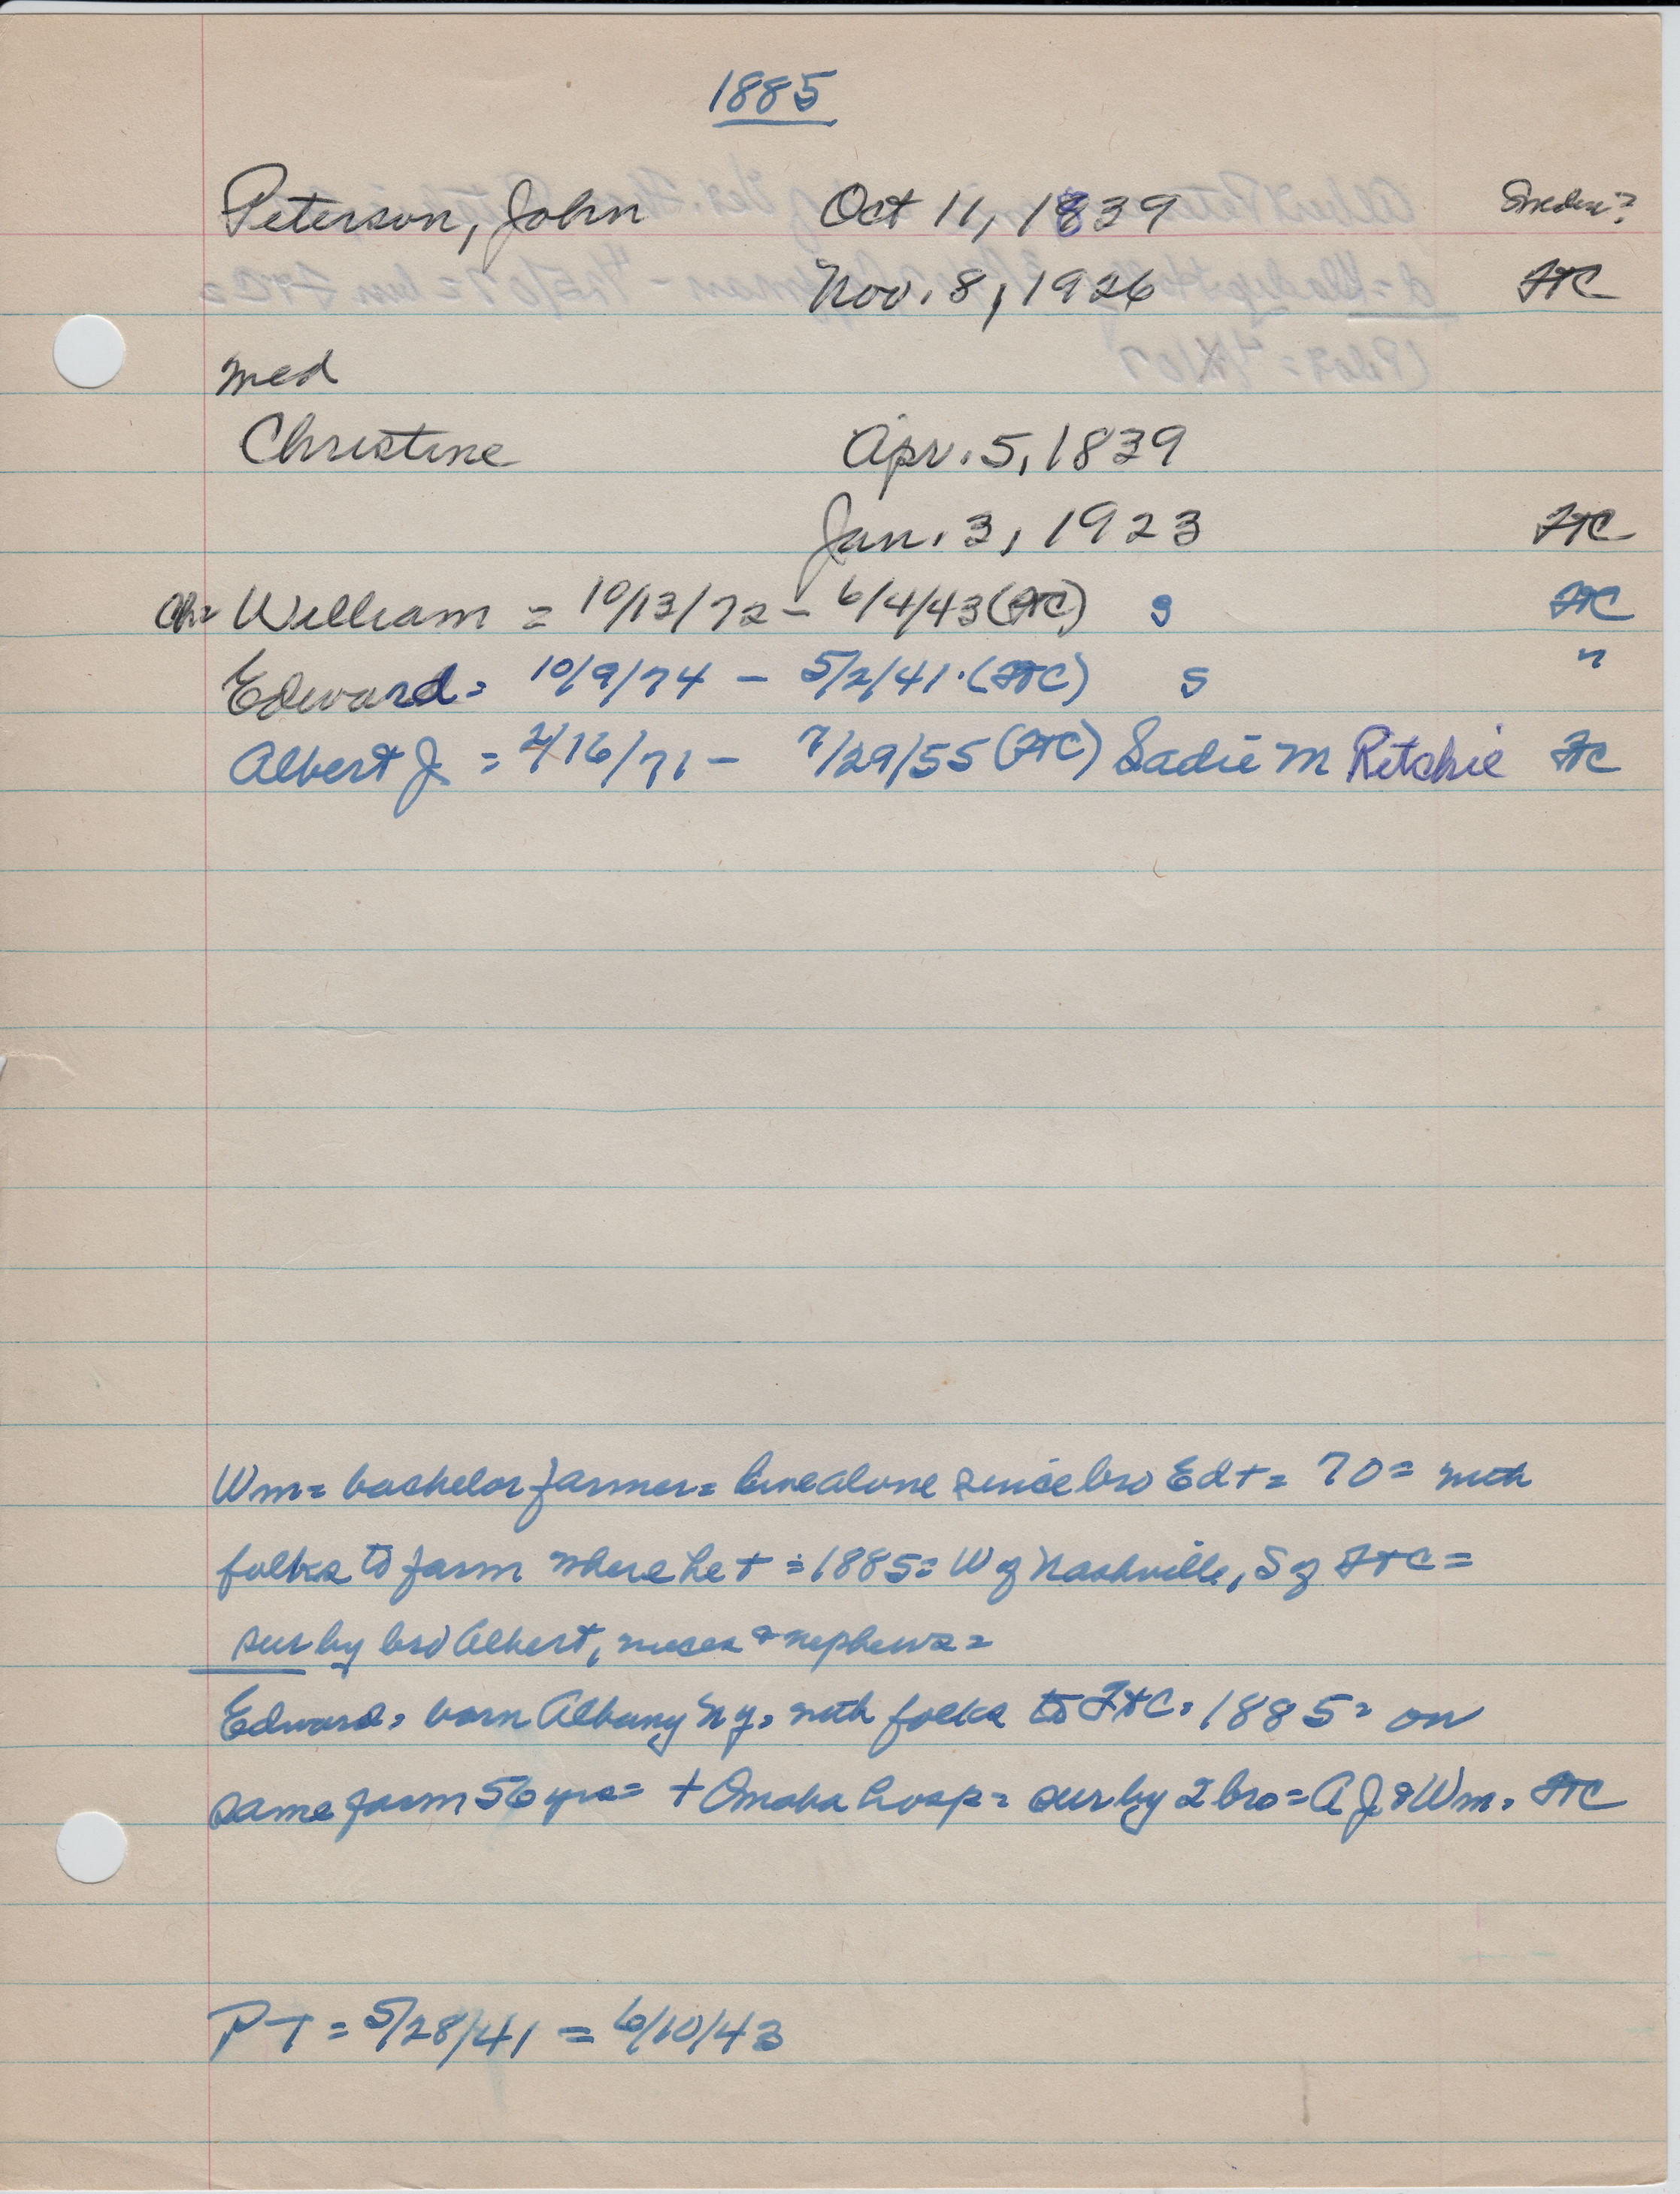 1885
Peterson, John Oct 11, 1839 Sweden?
Nov. 8, 1926 FtC
med
Christine Apr. 5, 1839
Jan. 3, 1923 FtC
Ch= William = 10/13/72 - 6/4/43 (FtC) S FtC
Edward = 10/9/74 - 5/2/41. (FtC) S "
Albert J = 2/16/71 - 7/29/55 (FtC) Sadie M Ritchie FtC
Wm = bachelor farmer = live alone since bro Ed + = 70 = with
folks to farm where he + = 1885 = W of Nashville, S of FtC =
sur by bro Albert, nieces & nephews =
Edward = born Albany NY = with folks to FtC = 1885 = on
same farm 56 yrs = + Omaha hosp = sur by 2 bro = A J & Wm = FtC
PT = 5/28/41 = 6/10/43